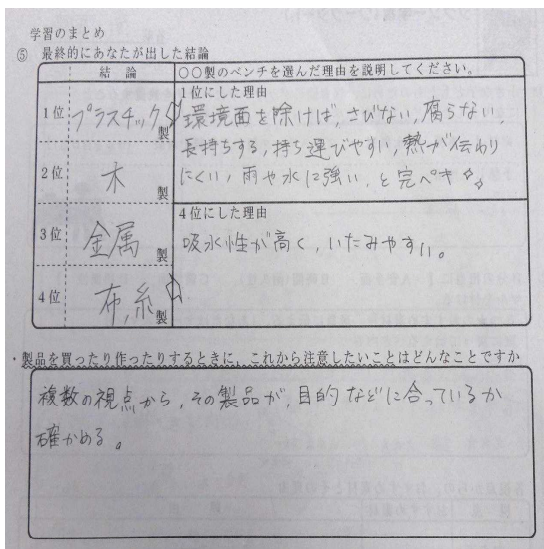 学習のまとめ
⑤ 最終的にあなたが出した結論
結論 ○○製のベンチを選んだ理由を説明してください。
1位 プラスチック製
1位にした理由
環境面を除けば、さびない、腐らない、
長持ちする、持ち運びやすい、熱が伝わり
にくい、雨や水に強い、と完ペキ✧✧
2位 木製
3位 金属製
4位にした理由
吸水性が高く、いたみやすい。
4位 布、糸製
・製品を買ったり作ったりするときに、これから注意したいことはどんなことですか
複数の視点から、その製品が、目的などに合っているか
確かめる。